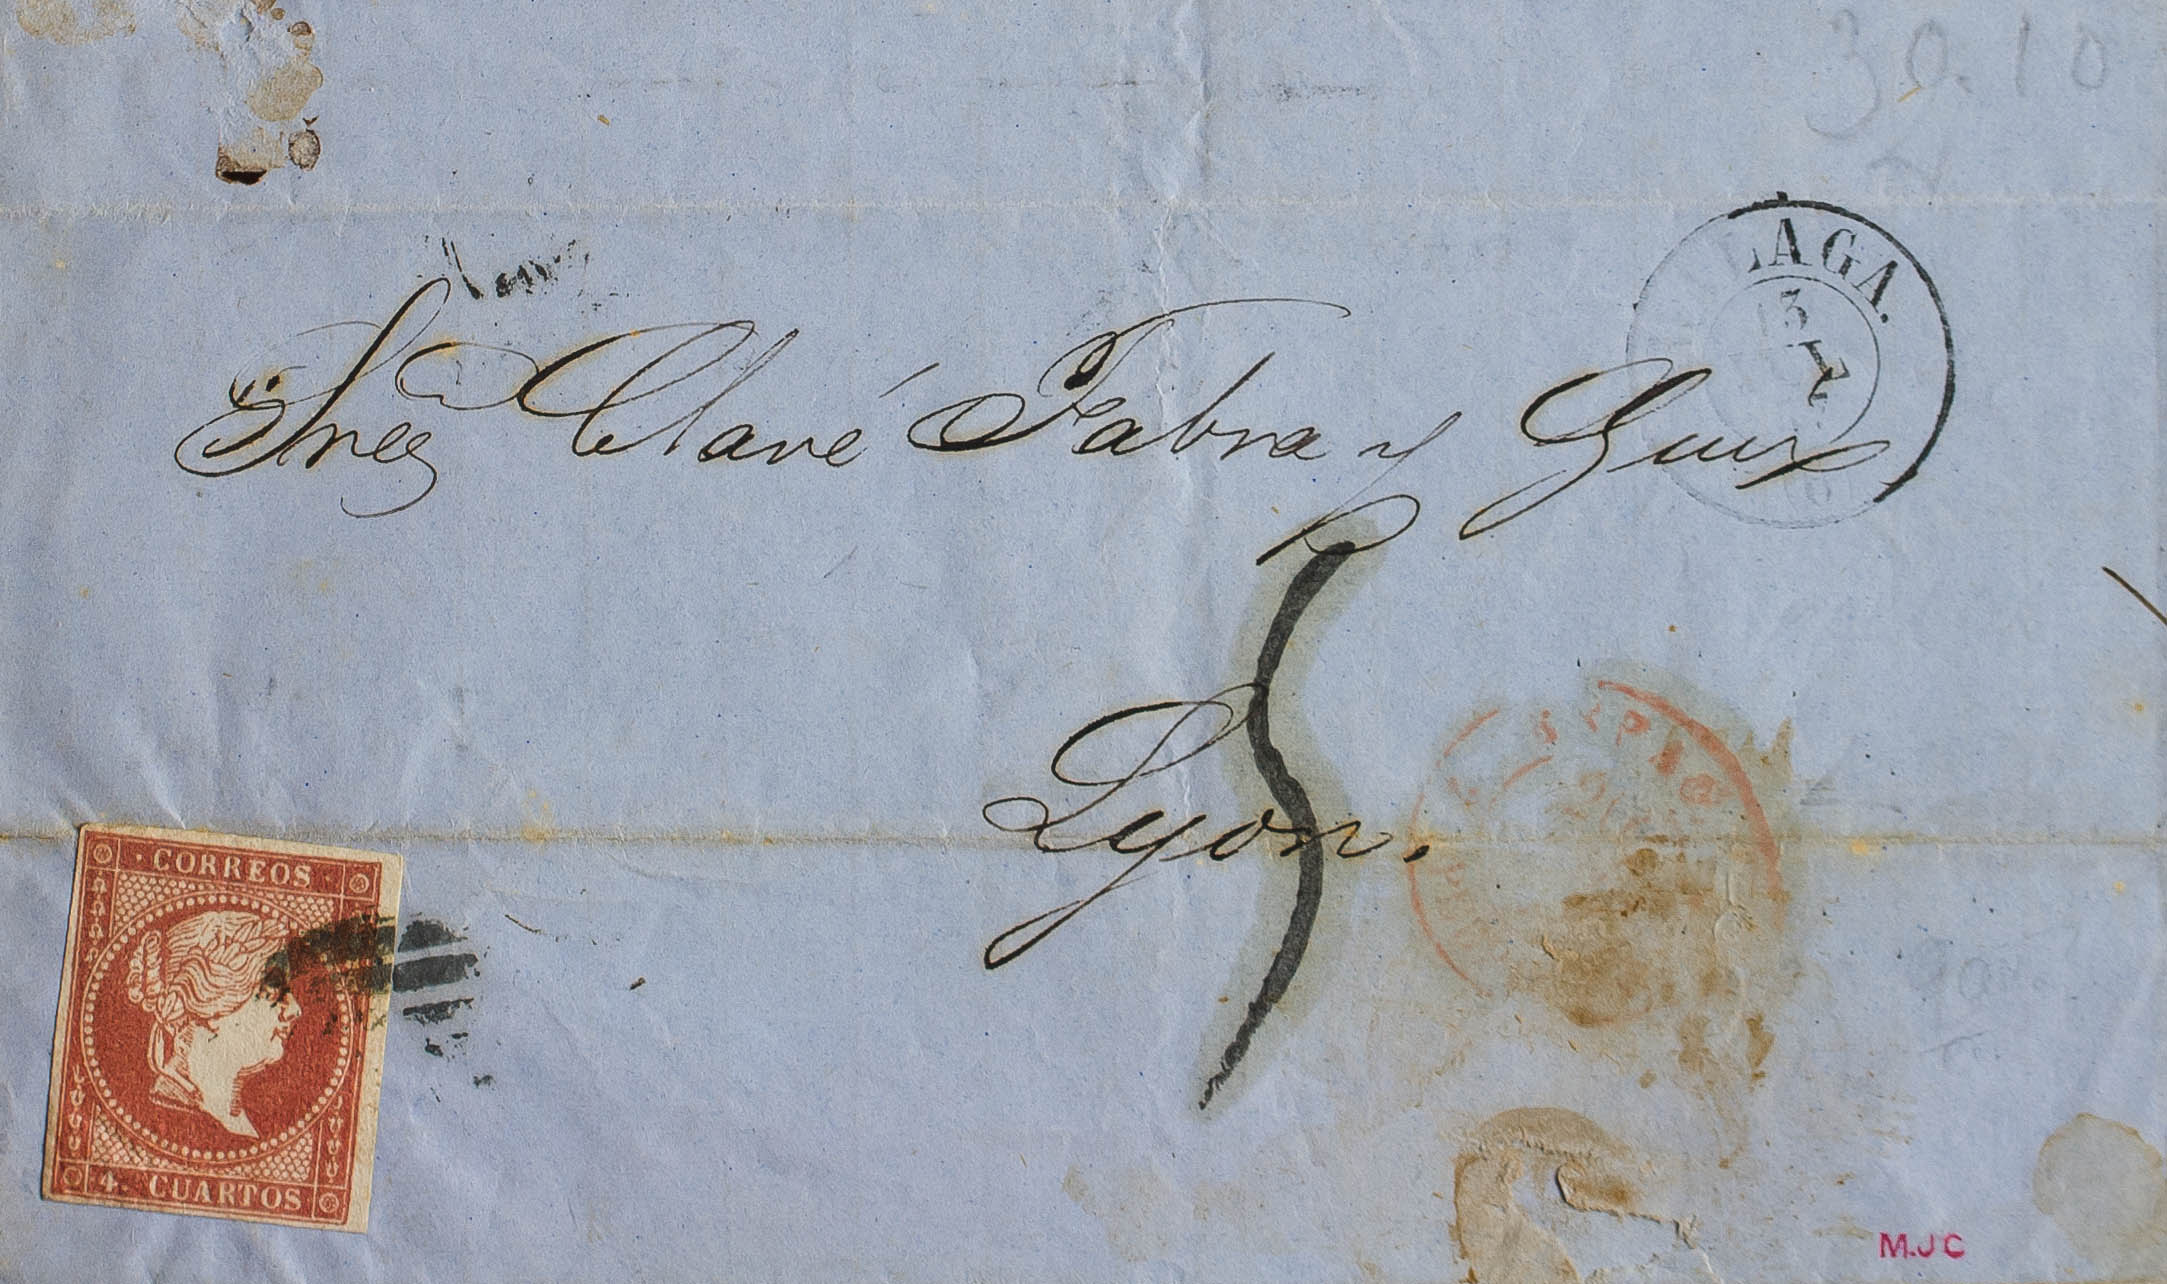 30.10
LAGA.
13
Sres Clavé Fabra y Guix
Lyon.
· CORREOS ·
4. CUARTOS
M.J C